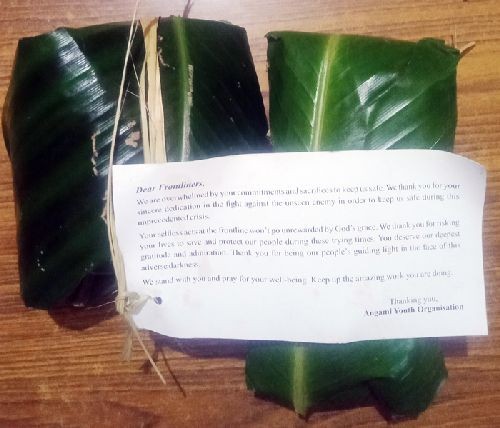 Dear Frontliners,
We are overwhelmed by your commitments and sacrifices to keep us safe. We thank you for your
sincere dedication in the fight against the unseen enemy in order to keep us safe during this
unprecedented crisis.
Your selfless act at the frontline won't go unrewarded by God's grace. We thank you for risking
your lives to save and protect our people during these trying times. You deserve our deepest
gratitude and admiration. Thank you for being our people's guiding light in the face of this
adverse darkness.
We stand with you and pray for your well-being. Keep up the amazing work you are doing.
Thanking you,
Angami Youth Organisation